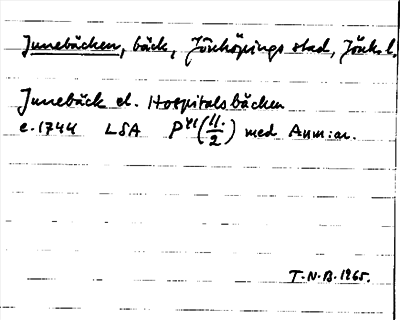 Junebäcken, bäck, Jönköpings stad, Jönk. l.
Junebäck el. Hospitalsbäcken
c. 1744 LSA P41 (11/2) med Anm:ar.
T.N.B. 1965.